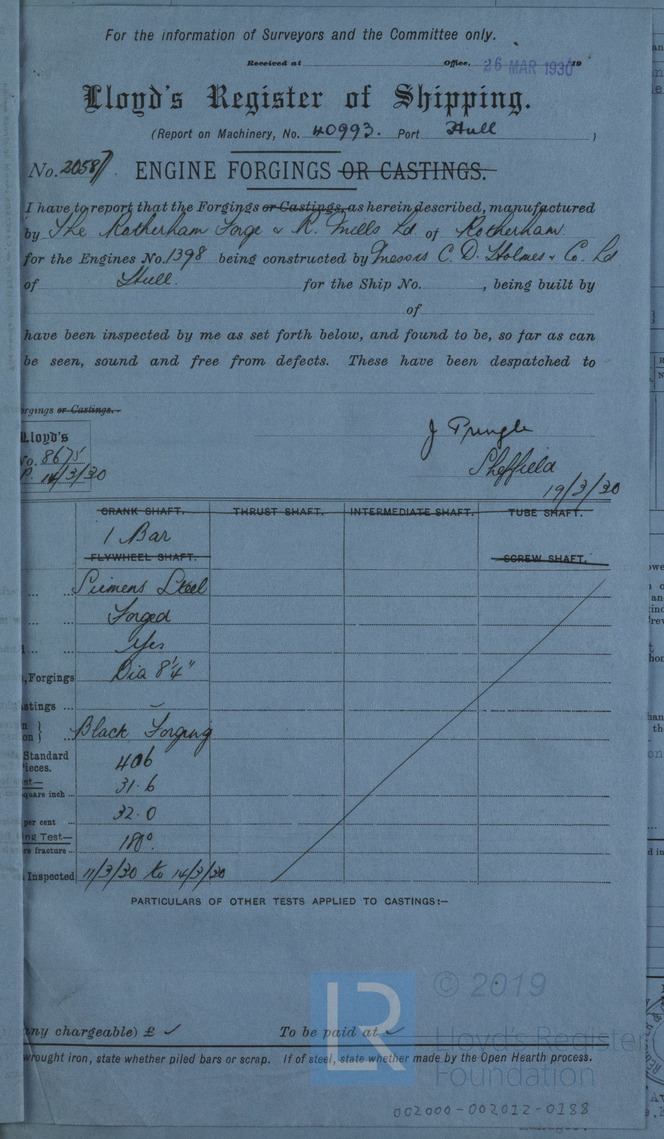 For the information of Surveyors and the Committee only.
Received at Office, 26 MAR 1930 19
Lloyd's Register of Shipping.
(Report on Machinery, No. 40993. Port Hull )
No. 20587 ENGINE FORGINGS OR CASTINGS.
I have to report that the Forgings or Castings, as herein described, manufactured
by The Rotherham Forge & R. Mills Ld of Rotherham
for the Engines No. 1398 being constructed by Messrs C. D. Holmes & Co. Ld
of Hull. for the Ship No. , being built by
of
have been inspected by me as set forth below, and found to be, so far as can
be seen, sound and free from defects. These have been despatched to
rgings or Castings.
Lloyd's
No. 8675
P. 14/3/30
J Pringle
Sheffield
19/3/30
CRANK SHAFT. THRUST SHAFT. INTERMEDIATE SHAFT. TUBE SHAFT.
1 Bar
FLYWHEEL SHAFT. SCREW SHAFT.
Siemens Steel
Forged
Yes
, Forgings Dia 8¼"
stings ...
on } Black Forging
Standard
ieces. 406
st—
square inch ... 31.6
per cent 32.0
ng Test—
re fracture ... 180°.
Inspected 11/3/30 to 14/3/30
PARTICULARS OF OTHER TESTS APPLIED TO CASTINGS:—
any chargeable) £ ✓ To be paid at ✓
wrought iron, state whether piled bars or scrap. If of steel, state whether made by the Open Hearth process.
LR
© 2019
Lloyd's Register
Foundation
002000-002012-0188